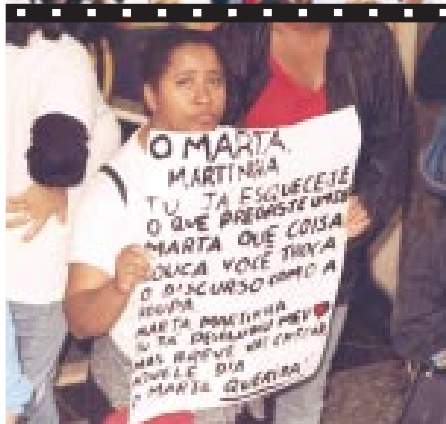 O MARTA,
MARTINHA
TU JA ESQUECESTE
O QUE PREGASTE
MARTA QUE COISA
LOUCA VOCÊ TROCA
O DISCURSO COMO A
ROUPA
MARTA MARTINHA
TU TA MEU
MAS BREVE VAI
AQUELE DIA
MARTA QUERIDA!